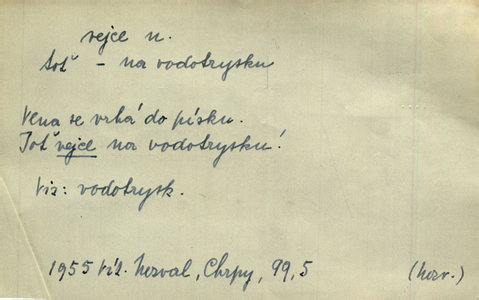 vejce n.
toť – na vodotrysku
Vlna se vrhá do písku.
Toť vejce na vodotrysku!
Viz: vodotrysk.
1955 Vít. Nezval, Chrpy, 99,5 (hov.)